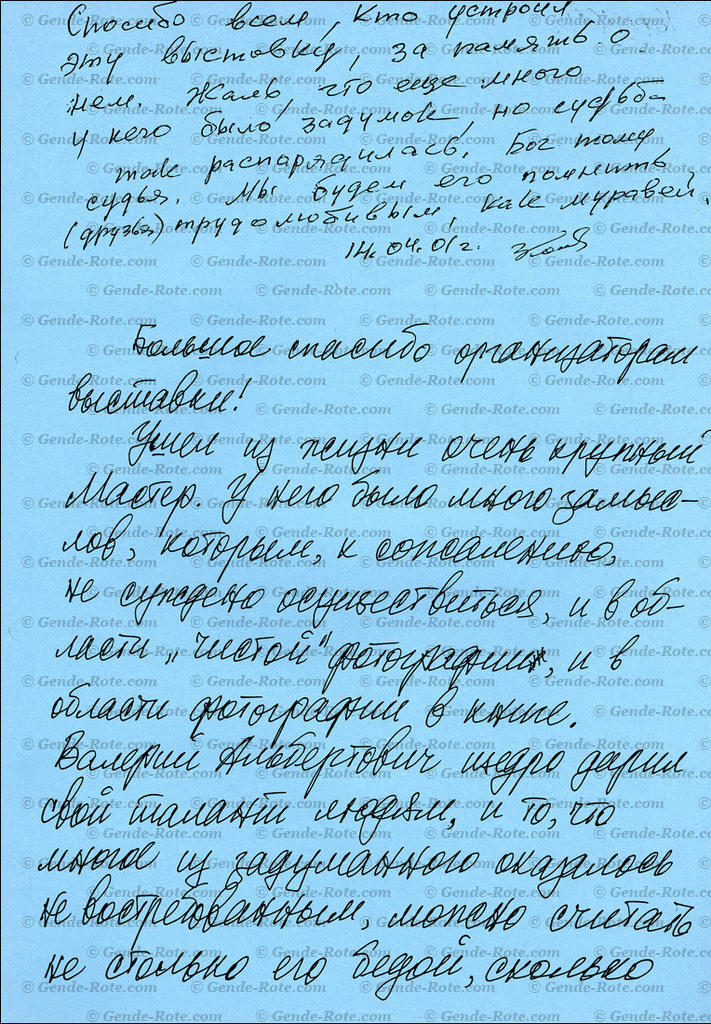 Спасибо всем, кто устроил
эту выставку, за память о
нем. Жаль что еще много
у него было задумок, но судьба
так распарядилась. Бог тому
судья. Мы будем его помнить
(друзья) трудолюбивым, как муравей.
14.04.01г.
Большое спасибо организаторам
выставки!
Ушел из жизни очень крупный
Мастер. У него было много замыс-
лов, которым, к сожалению,
не суждено осуществиться, и в об-
ласти „чистой" фотографии, и в
области фотографии в книге.
Валерий Альбертович щедро дарил
свой талант людям, и то, что
многое из задуманного оказалось
не востребованным, можно считать
не столько его бедой, сколько
© Gende-Rote.com